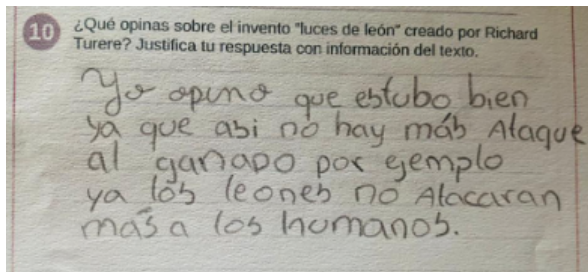 10 ¿Qué opinas sobre el invento "luces de león" creado por Richard
Turere? Justifica tu respuesta con información del texto.
Yo opino que estubo bien
ya que asi no hay más Ataque
al ganado por ejemplo
ya los leones no Atacaran
más a los humanos.